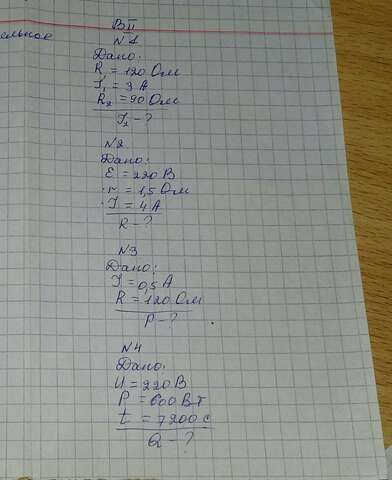 ельное
В II
N 1
Дано:
R₁ = 120 Ом
I₁ = 3 А
R₂ = 90 Ом
I₂ - ?
N2
Дано:
Ɛ = 220 В
r = 1,5 Ом
I = 4 А
R - ?
N3
Дано:
I = 0,5 А
R = 120 Ом
P - ?
N4
Дано:
U = 220 В
P = 600 Вт
t = 7200 с
Q - ?